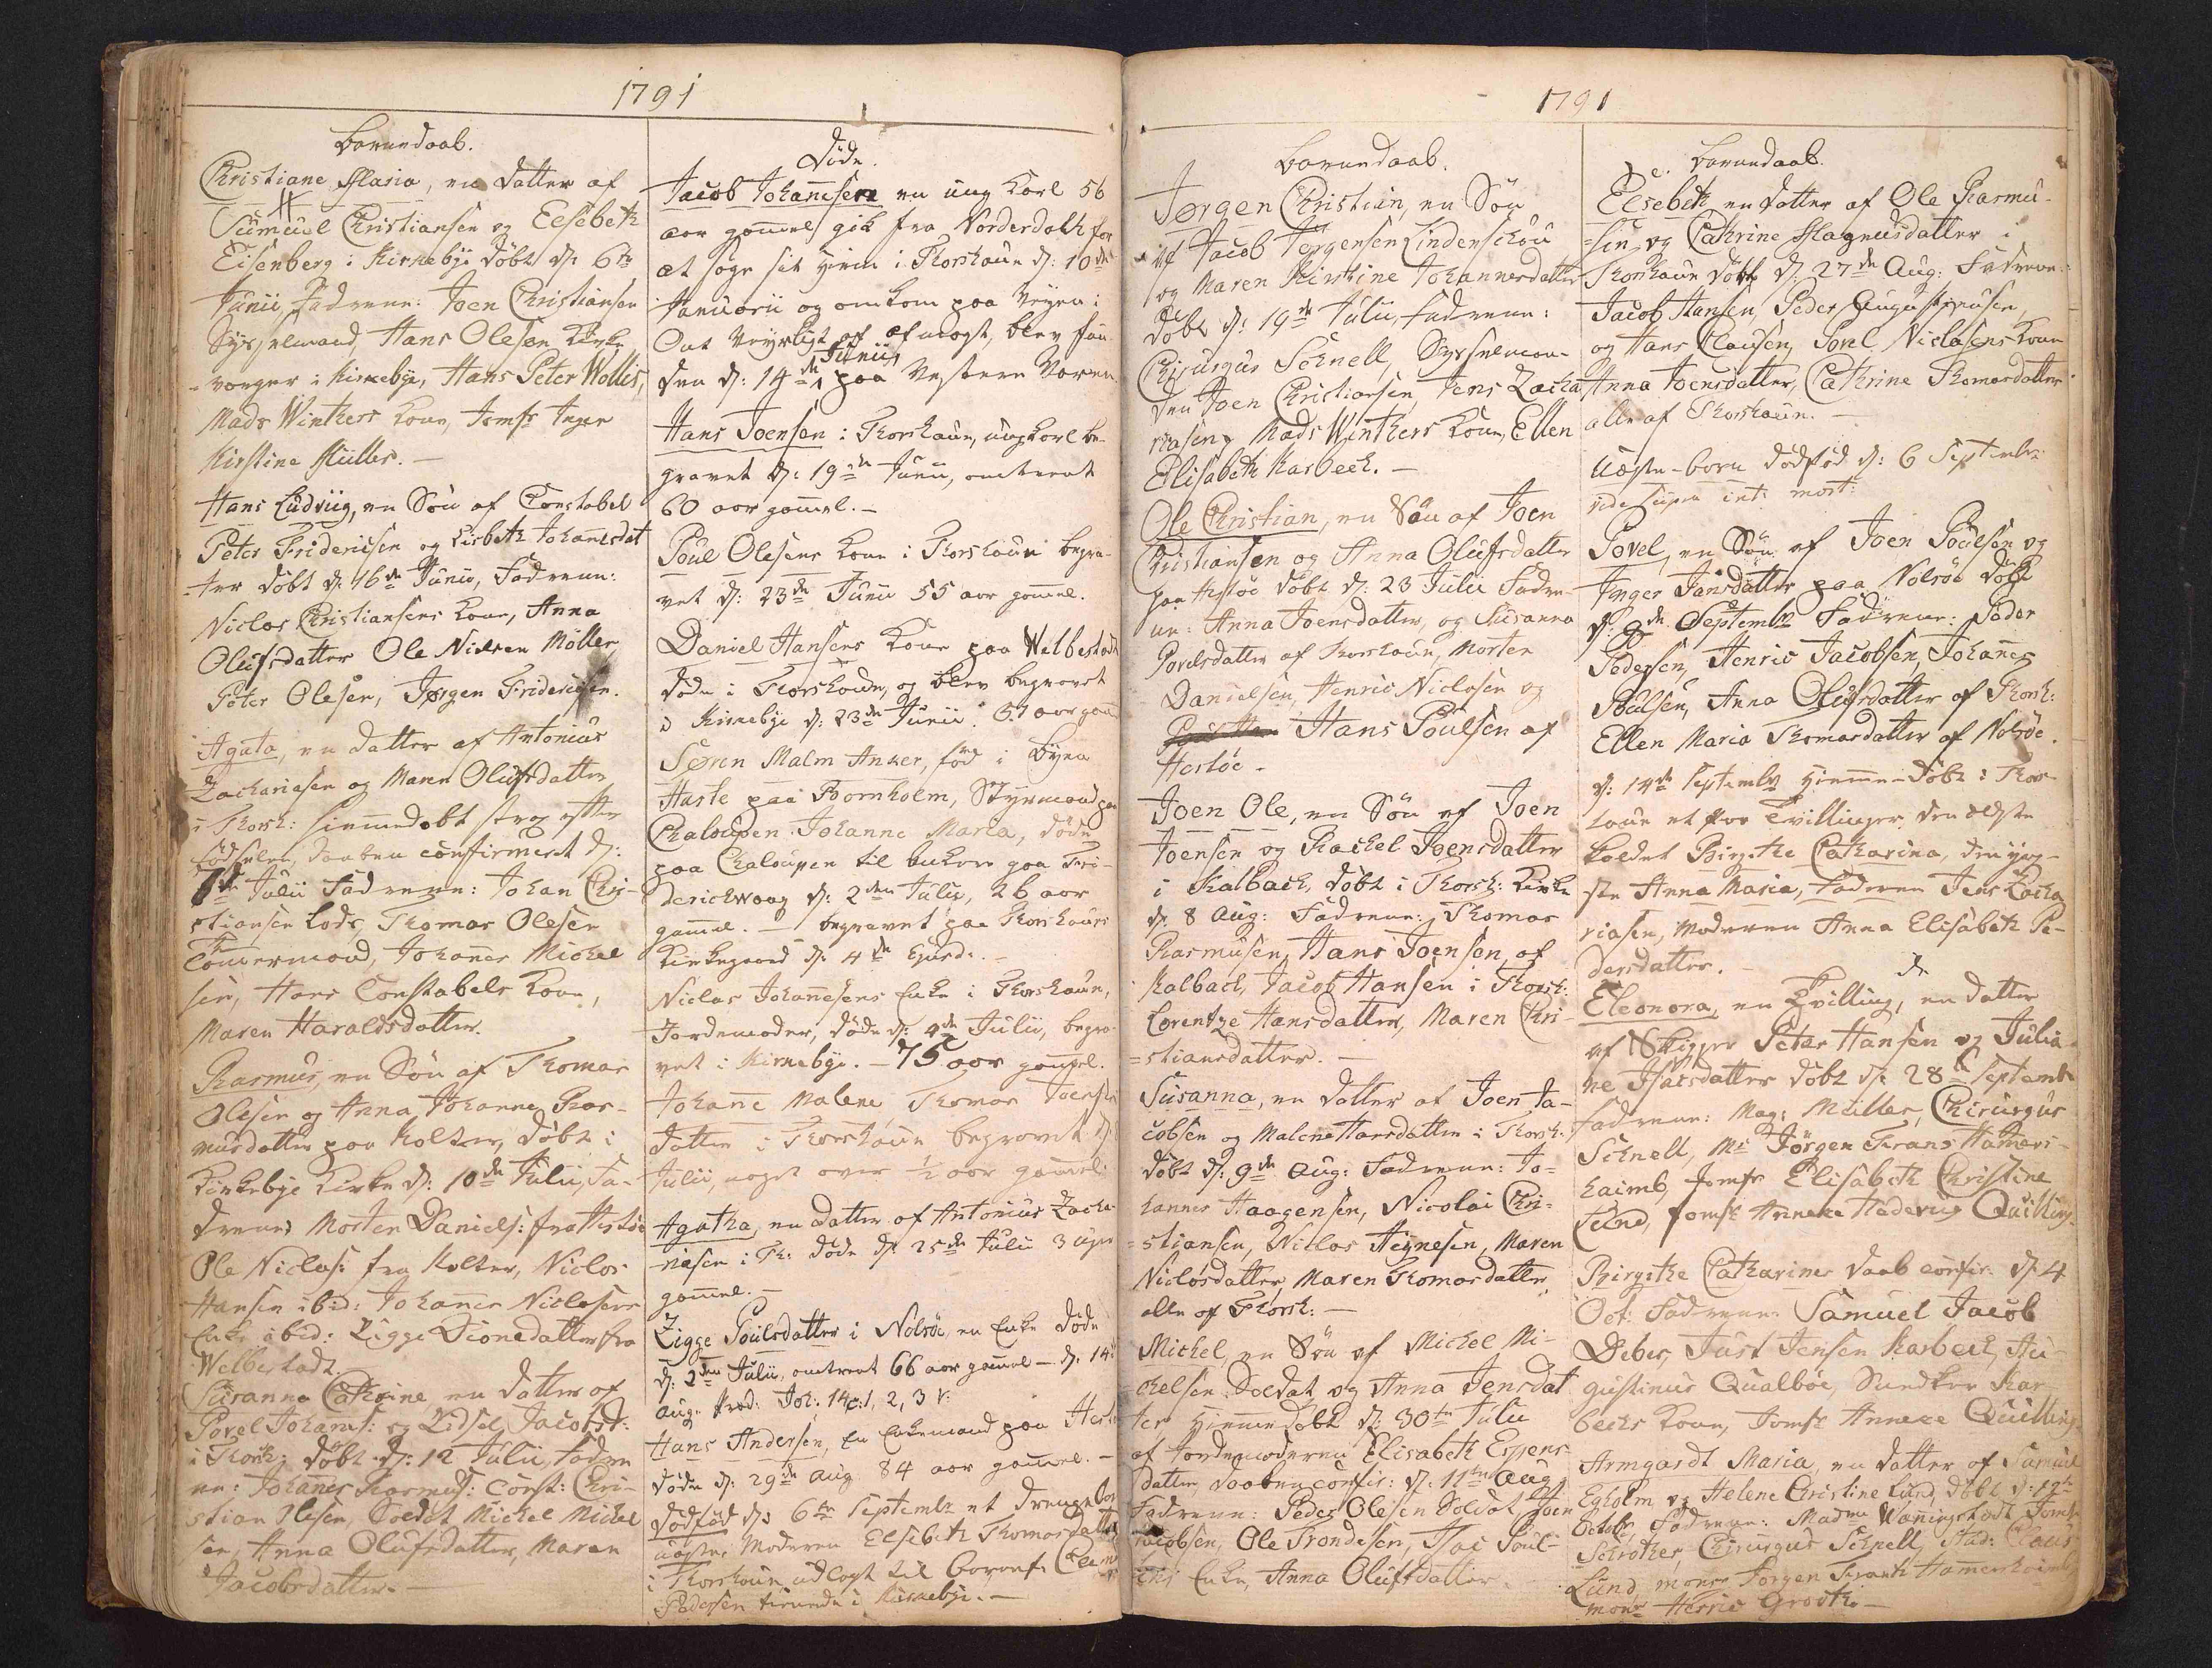 1791
Barnedaab.
Christiane Maria, en datter af
Samuel Christiansen og Elsebeth
Eisenberg i Kirkebye døbt d: 6te
Junii, Fadrene: Joen Christiansen
Sysselmand, Hans Olesen Kirke
-værger i Kirkebye, Hans Peter Wollis,
Mads Winthers Kone, Jomfr Inger
Kirstine Müller. —
Hans Ludvig, en Søn af Constabel
Peter Fridericsen og Lisbeth Johanesdat
-ter døbt d: 16de Junii, Fadrene:
Niclas Christiansens Kone, Anna
Olufsdatter Ole Nielsen Møller
Peter Olesen, Jørgen Fridericsen.
Agata, en datter af Antonius
Zachariasen og Maren Olufsdatter
i Thorsh: hiemmedøbt strax efter
fødselen, daaben confirmeret d:
1de Julii Fadrene: Johan Chri-
stiansen Lods, Thomas Olesen
Tømermand, Johanes Michel
sen, Hans Constabels Kone,
Maren Haraldsdatter.
Rasmus, en Søn af Thomas
Olesen og Anna Johanne Ras-
musdatter paa Kolter, døbt i
Kirkebye Kirke d: 10de Julii, Fa-
drene: Morten Daniels: fra Hestøe
Ole Niclas: fra Kolter, Niclas
Hansen ibid: Johanes Niclasens
Enke ibid: Zigge Dionedatter fra
Welbestadt.
Susanna Cathrine en datter af
Povel Johanes: og Zidsel Jacobsd:
i Thorsh: døbt d: 12 Julii, Fadre
ne: Johanes Rasmus: Const: Chri-
stian Olesen, Soldat Michel Michel
sen, Anna Olufsdatter, Maren
Jacobsdatter. —
Døde.
Jacob Johanesen en ung Karl 56
aar gamel gik fra Norderdahl for
at søge sit hiem i Thorshaun d: 10de
Januarii og omkom paa Veyen i
Ont Veyrligt af afmagt, blev fun
den d: 14de Junii paa Vestere
Hans Joensen i Thorshaun, ungkarl be-
gravet d: 19de Junii, omtrent
60 aar gamel. —
Poul Olesens Kone i Thorshaun begra-
vet d: 23de Junii 55 aar gamel.
Daniel Hansens Kone paa Welbestadt
døde i Thorshaun, og blev begravet
i Kirkebye d: 23de Junii. 57 aar gam
Søren Malm Anker, fød i Byen
Hasle paa Bornholm, Styrmand paa
Chaloupen Johanne Maria, døde
paa Chaloupen til ankers paa Fri-
derichwaag d: 2den Julii, 26 aar
gamel. — begravet paa Thorshauns
Kirkegaard d: 4de Ejusd: —
Niclas Johanesens Enke i Thorshaun,
Jordemoder, døde d: 4de Julii, begra-
vet i Kirkebye. — 75 aar gamel.
Johane Malene Thomas Joensen
datter i Thorshaun begravet d:
Julii, noget over ½ aar gamel.
Agatha, en datter af Antonius Zacha-
riasen i Th: døde d: 25de Julii 3 uger
gamel. —
Zigge Poulsdatter i Nolsøe, en Enke døde
d: 2den Julii, omtrent 66 aar gamel — d: 14
Aug: Præd: Joh: 14 c: 1, 2, 3 v:
Hans Andersen, en Enkemand paa Hestøe
døde d: 29de Aug 84 aar gamel. —
Dødfød d: 6te Septembr et drengebarn
uægte, Moderen Elsebeth Thomasdatter
i Thorshaun udlagt til Barnef: Clem
Pedersen tienende i Kirkebye. —
1791
Barnedaab.
Jørgen Christian, en Søn
af Jacob Jørgensen Lindenschou
og Maren Kirstine Johannesdatter
døbt d: 19de Julii, Fadrene:
Chirurgus Schnell, Sysselman-
den Joen Christiansen, Jens Zacha
riasen, Mads Winthers Kone, Ellen
Elisabeth Harbech. —
Ole Christian, en Søn af Joen
Christiansen og Anna Olufsdatter
paa Hestøe døbt d: 23 Julii Fadre-
ne: Anna Joensdatter, og Susanna
Povelsdatter af Thorshaun, Morten
Danielsen, Henric Niclasen og
Hans Poulsen af
Hestøe. -
Joen Ole, en Søn af Joen
Joensen og Rachel Joensdatter
i Kalbach, døbt i Thorsh: Kirke
d: 8 Aug: Fadrene: Thomas
Rasmusen, Hans Joensen, af
Kalbach, Jacob Hansen i Thorsh:
Lorentze Hansdatter, Maren Chri-
=stiansdatter. —
Susanna, en datter af Joen Ja-
cobsen og Malene Hansdatter i Thorsh:
døbt d: 9de Aug: Fadrene: Jo-
hannes Haagensen, Nicolai Chri-
=stiansen, Niclas Heinesen, Maren
Niclasdatter, Maren Thomasdatter,
alle af Thorsh: —
Michel, en Søn af Michel Mi-
chelsen Soldat og Anna Jensdat
ter hiemmedøbt d: 30te Julii
af Jordemoderen Elisabeth Espens-
datter, daaben confir: d: 11te Aug
Fadrene: Peder Olesen Soldat, Joen
Jacobsen, Ole Trondesen, Isac Poul-
sens Enke, Anna Olufsdatter.
Barnedaab.
Elsebeth en datter af Ole Rasmu-
=sen, og Cathrine Magnusdatter i
Thorshaun døbt d: 27de Aug: Fadrene:
Jacob Hansen, Peder Augustinusen,
og Hans Clausen, Povel Niclasens Kone
Anna Joensdatter, Cathrine Thomasdatter
alle af Thorshaun. —
Uægte-barn dødfød d: 6 Septembr:
vide supra int: mort:
Povel, en Søn af Joen Poulsen og
Inger Jansdatter paa Nolsøe døbt
d: 9de Septembr Fadrene: Peder
Pedersen, Henric Jacobsen, Johanes
Poulsen, Anna Olufsdatter af Thorsh:
Ellen Maria Thomasdatter af Nolsøe.
d: 14de Septembr hieme-døbt i Thors-
haun et Par Tvillinger, den ældste
kaldet Birgithe Catharina, den yng-
ste Anna Maria, Faderen Jens Zacha
riasen, Moderen Anna Elisabeth Pe-
dersdatter. —
Eleonora, en Tvilling, en datter
af Skipper Peter Hansen og Julia-
ne Isacsdatter døbt d: 28de Septembr
Fadrene: Mag: Müller, Chirurgus
Schnell, Mr Jørgen Frans Hamers-
haimb, Jomfr Elisabeth Christine
Jomfr Anneke Hedevig Quilling.
Birgithe Catharines daab confir: d: 4
Oct: Fadrene Samuel Jacob
Debes, Just Jensen Harbech, Au-
gustinus Qualbøe, Har
bechs Kone, Jomfr Anneke Quilling
Armgardt Maria, en datter af Samuel
Egholm og Helene Christine Lund, døbt d: 12te
Octobr, Fadrene: Madme Waningstadt Jomfr
Schrøter, Chirurgus Schnell, Claus
Lund, monsr Jørgen Frantz Hamershaimb
monsr Henric Grootke —